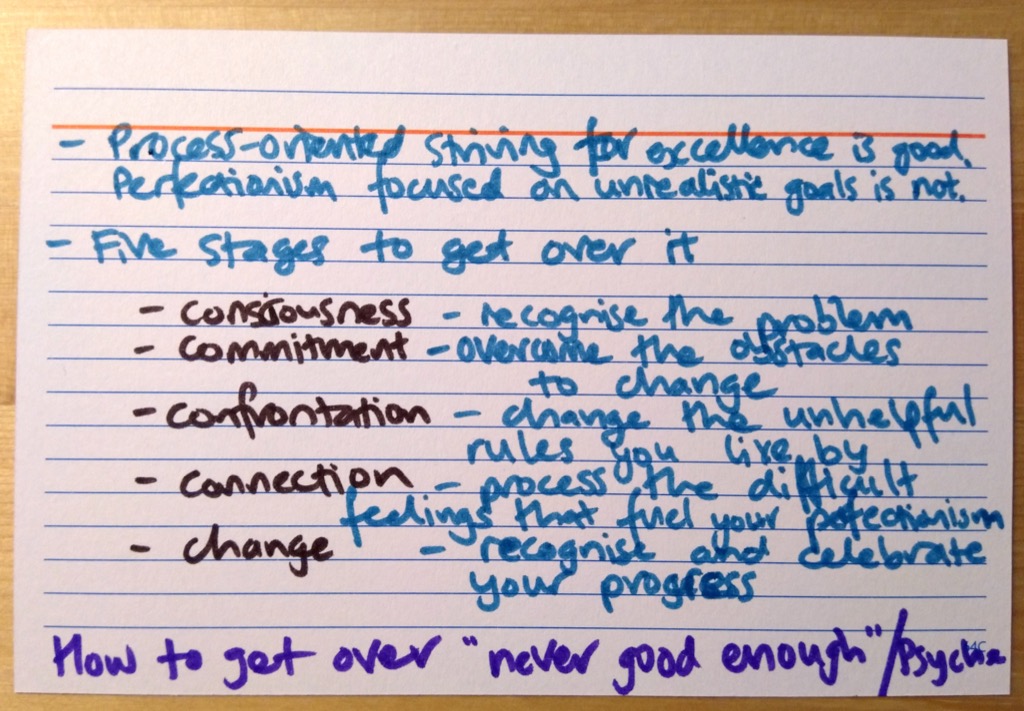 - Process-oriented striving for excellence is good.
Perfectionism focused on unrealistic goals is not.
- Five stages to get over it
- consciousness - recognise the problem
- commitment - overcome the obstacles
to change
- confrontation - change the unhelpful
rules you live by
- connection - process the difficult
feelings that fuel your pefectionism
- change - recognise and celebrate
your progress
How to get over "never good enough" / Psyche